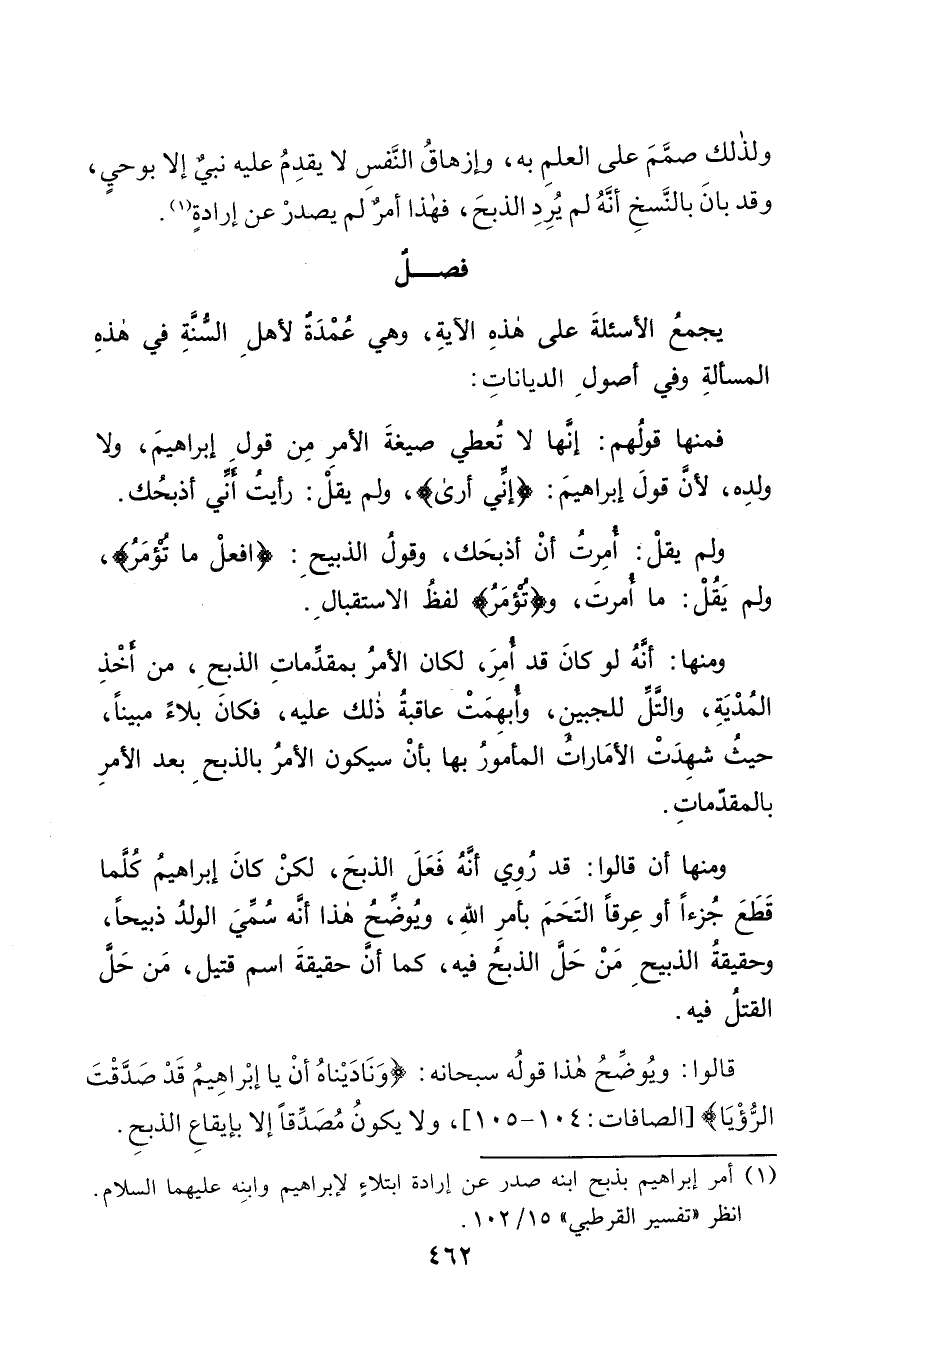 ولذٰلك صمَّمَ على العلمِ به، وإزهاقُ النَّفسِ لا يقدِمُ عليه نبيٌ إلا بوحيٍ،
وقد بانَ بالنَّسخِ أنَّهُ لم يُرِدِ الذبحَ، فهٰذا أمرٌ لم يصدرْ عن إرادةٍ(١).
فصــلٌ
يجمعُ الأسئلةَ على هٰذهِ الآيةِ، وهي عُمْدَةٌ لأهلِ السُّنَّةِ في هٰذهِ
المسألةِ وفي أصولِ الدياناتِ:
فمنها قولُهم: إنَّها لا تُعطي صيغةَ الأمرِ مِن قولِ إبراهيمَ، ولا
ولدِه، لأنَّ قولَ إبراهيمَ: ﴿إنِّي أرىٰ﴾، ولم يقلْ: رأيتُ أنِّي أذبحُك.
ولم يقلْ: أُمِرتُ أنْ أذبحَك، وقولُ الذبيحِ: ﴿افعلْ ما تُؤْمَرُ﴾،
ولم يَقُلْ: ما أُمرتَ، و﴿تُؤْمَرُ﴾ لفظُ الاستقبالِ.
ومنها: أنَّهُ لو كانَ قد أُمِرَ، لكان الأمرُ بمقدِّماتِ الذبحِ، من أَخْذِ
المُدْيَةِ، والتَّلِّ للجبينِ، وأُبهِمَتْ عاقبةُ ذٰلك عليه، فكانَ بلاءً مبيناً،
حيثُ شهِدَتْ الأمَاراتُ المأمورُ بها بأنْ سيكون الأمرُ بالذبحِ بعد الأمرِ
بالمقدّماتِ.
ومنها أن قالوا: قد رُوِي أنَّهُ فَعَلَ الذبحَ، لكنْ كانَ إبراهيمُ كُلَّما
قَطَعَ جُزءاً أو عِرقاً التَحَمَ بأمرِ اللهِ، ويُوضِّحُ هٰذا أنَّه سُمِّيَ الولدُ ذبيحاً،
وحقيقةُ الذبيحِ مَنْ حَلَّ الذبحُ فيه، كما أنَّ حقيقةَ اسم قتيل، مَن حَلَّ
القتلُ فيه.
قالوا: ويُوضِّحُ هٰذا قولُه سبحانه: ﴿وَنَادَيْنَاهُ أنْ يا إبْراهِيمُ قَدْ صَدَّقْتَ
الرُّؤْيَا﴾ [الصافات: ١٠٤-١٠٥]، ولا يكونُ مُصَدِّقاً إلا بإيقاعِ الذبحِ.
(١) أمر إبراهيم بذبح ابنه صدر عن إرادة ابتلاءٍ لإبراهيم وابنِه عليهما السلام.
انظر «تفسير القرطبي» ١٠٢/١٥.
٤٦٢